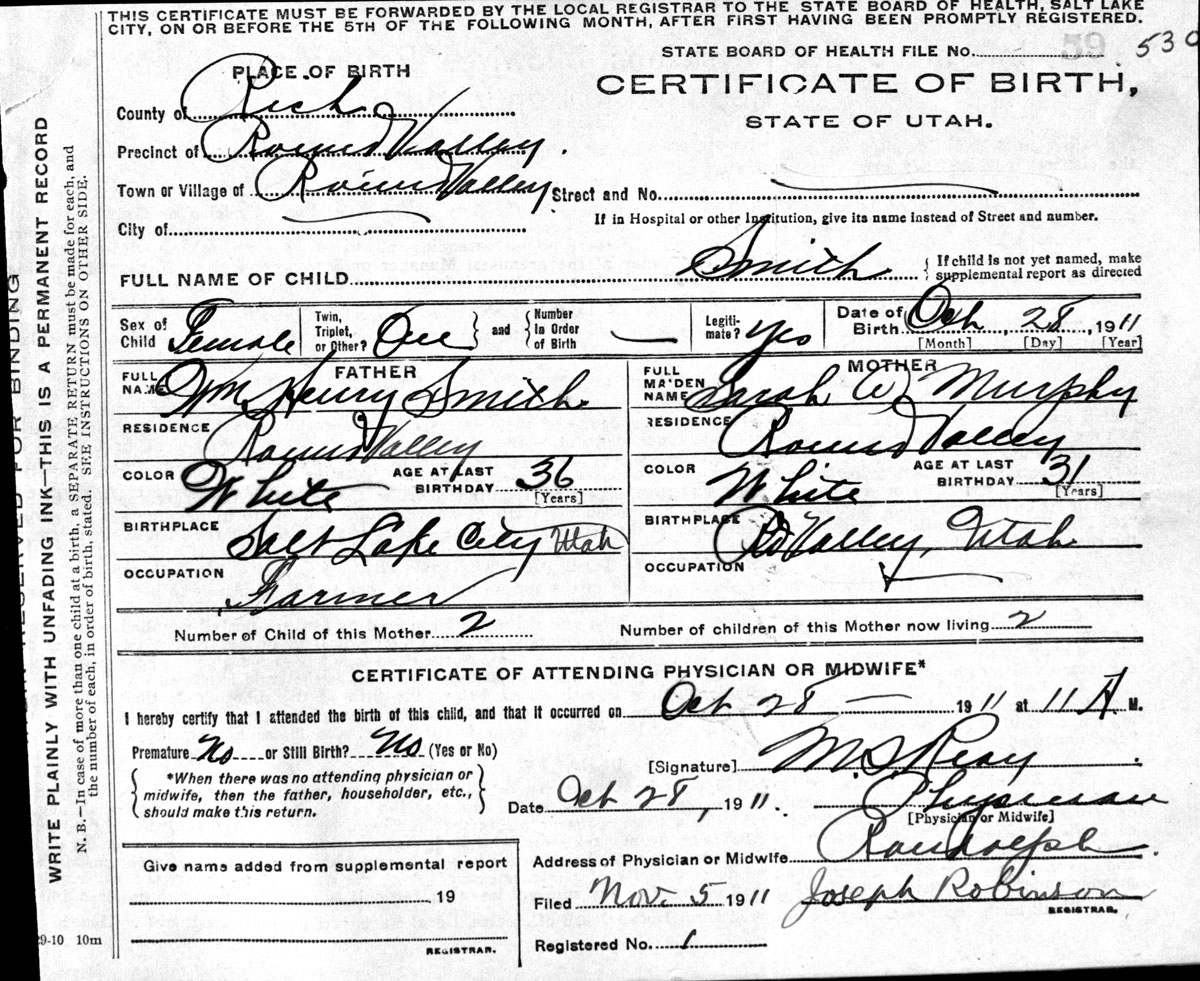 THIS CERTIFICATE MUST BE FORWARDED BY THE LOCAL REGISTRAR TO THE STATE BOARD OF HEALTH, SALT LAKE
CITY, ON OR BEFORE THE 5TH OF THE FOLLOWING MONTH, AFTER FIRST HAVING BEEN PROMPTLY REGISTERED.
STATE BOARD OF HEALTH FILE No. 59 530
PLACE OF BIRTH
CERTIFICATE OF BIRTH,
STATE OF UTAH.
County of Rich
Precinct of Round Valley.
Town or Village of Round Valley Street and No.
If in Hospital or other Institution, give its name instead of Street and number.
City of
FULL NAME OF CHILD Smith { If child is not yet named, make supplemental report as directed
Sex of Child Female Twin, Triplet, or Other? One } and { Number in Order of Birth — Legitimate? Yes Date of Birth Oct 28, 1911
[Month] [Day] [Year]
FATHER MOTHER
FULL NAME Wm Henry Smith FULL MAIDEN NAME Sarah A Murphy
RESIDENCE Round Valley RESIDENCE Round Valley
COLOR White AGE AT LAST BIRTHDAY 36 [Years] COLOR White AGE AT LAST BIRTHDAY 31 [Years]
BIRTHPLACE Salt Lake City Utah BIRTHPLACE Rd Valley, Utah
OCCUPATION Farmer OCCUPATION
Number of Child of this Mother 2 Number of children of this Mother now living 2
CERTIFICATE OF ATTENDING PHYSICIAN OR MIDWIFE*
I hereby certify that I attended the birth of this child, and that it occurred on Oct 28 — 1911 at 11 A M.
Premature No or Still Birth? No (Yes or No)
[Signature] M S Reay
{ *When there was no attending physician or midwife, then the father, householder, etc., should make this return. }
Date Oct 28, 1911. Physician
[Physician or Midwife]
Address of Physician or Midwife Randolph.
Give name added from supplemental report
19
REGISTRAR.
Filed Nov. 5 1911 Joseph Robinson
REGISTRAR.
Registered No. 1
29-10 10m
WRITE PLAINLY WITH UNFADING INK—THIS IS A PERMANENT RECORD
N. B.—In case of more than one child at a birth, a SEPARATE RETURN must be made for each, and
the number of each, in order of birth, stated. SEE INSTRUCTIONS ON OTHER SIDE.
RESERVED FOR BINDING